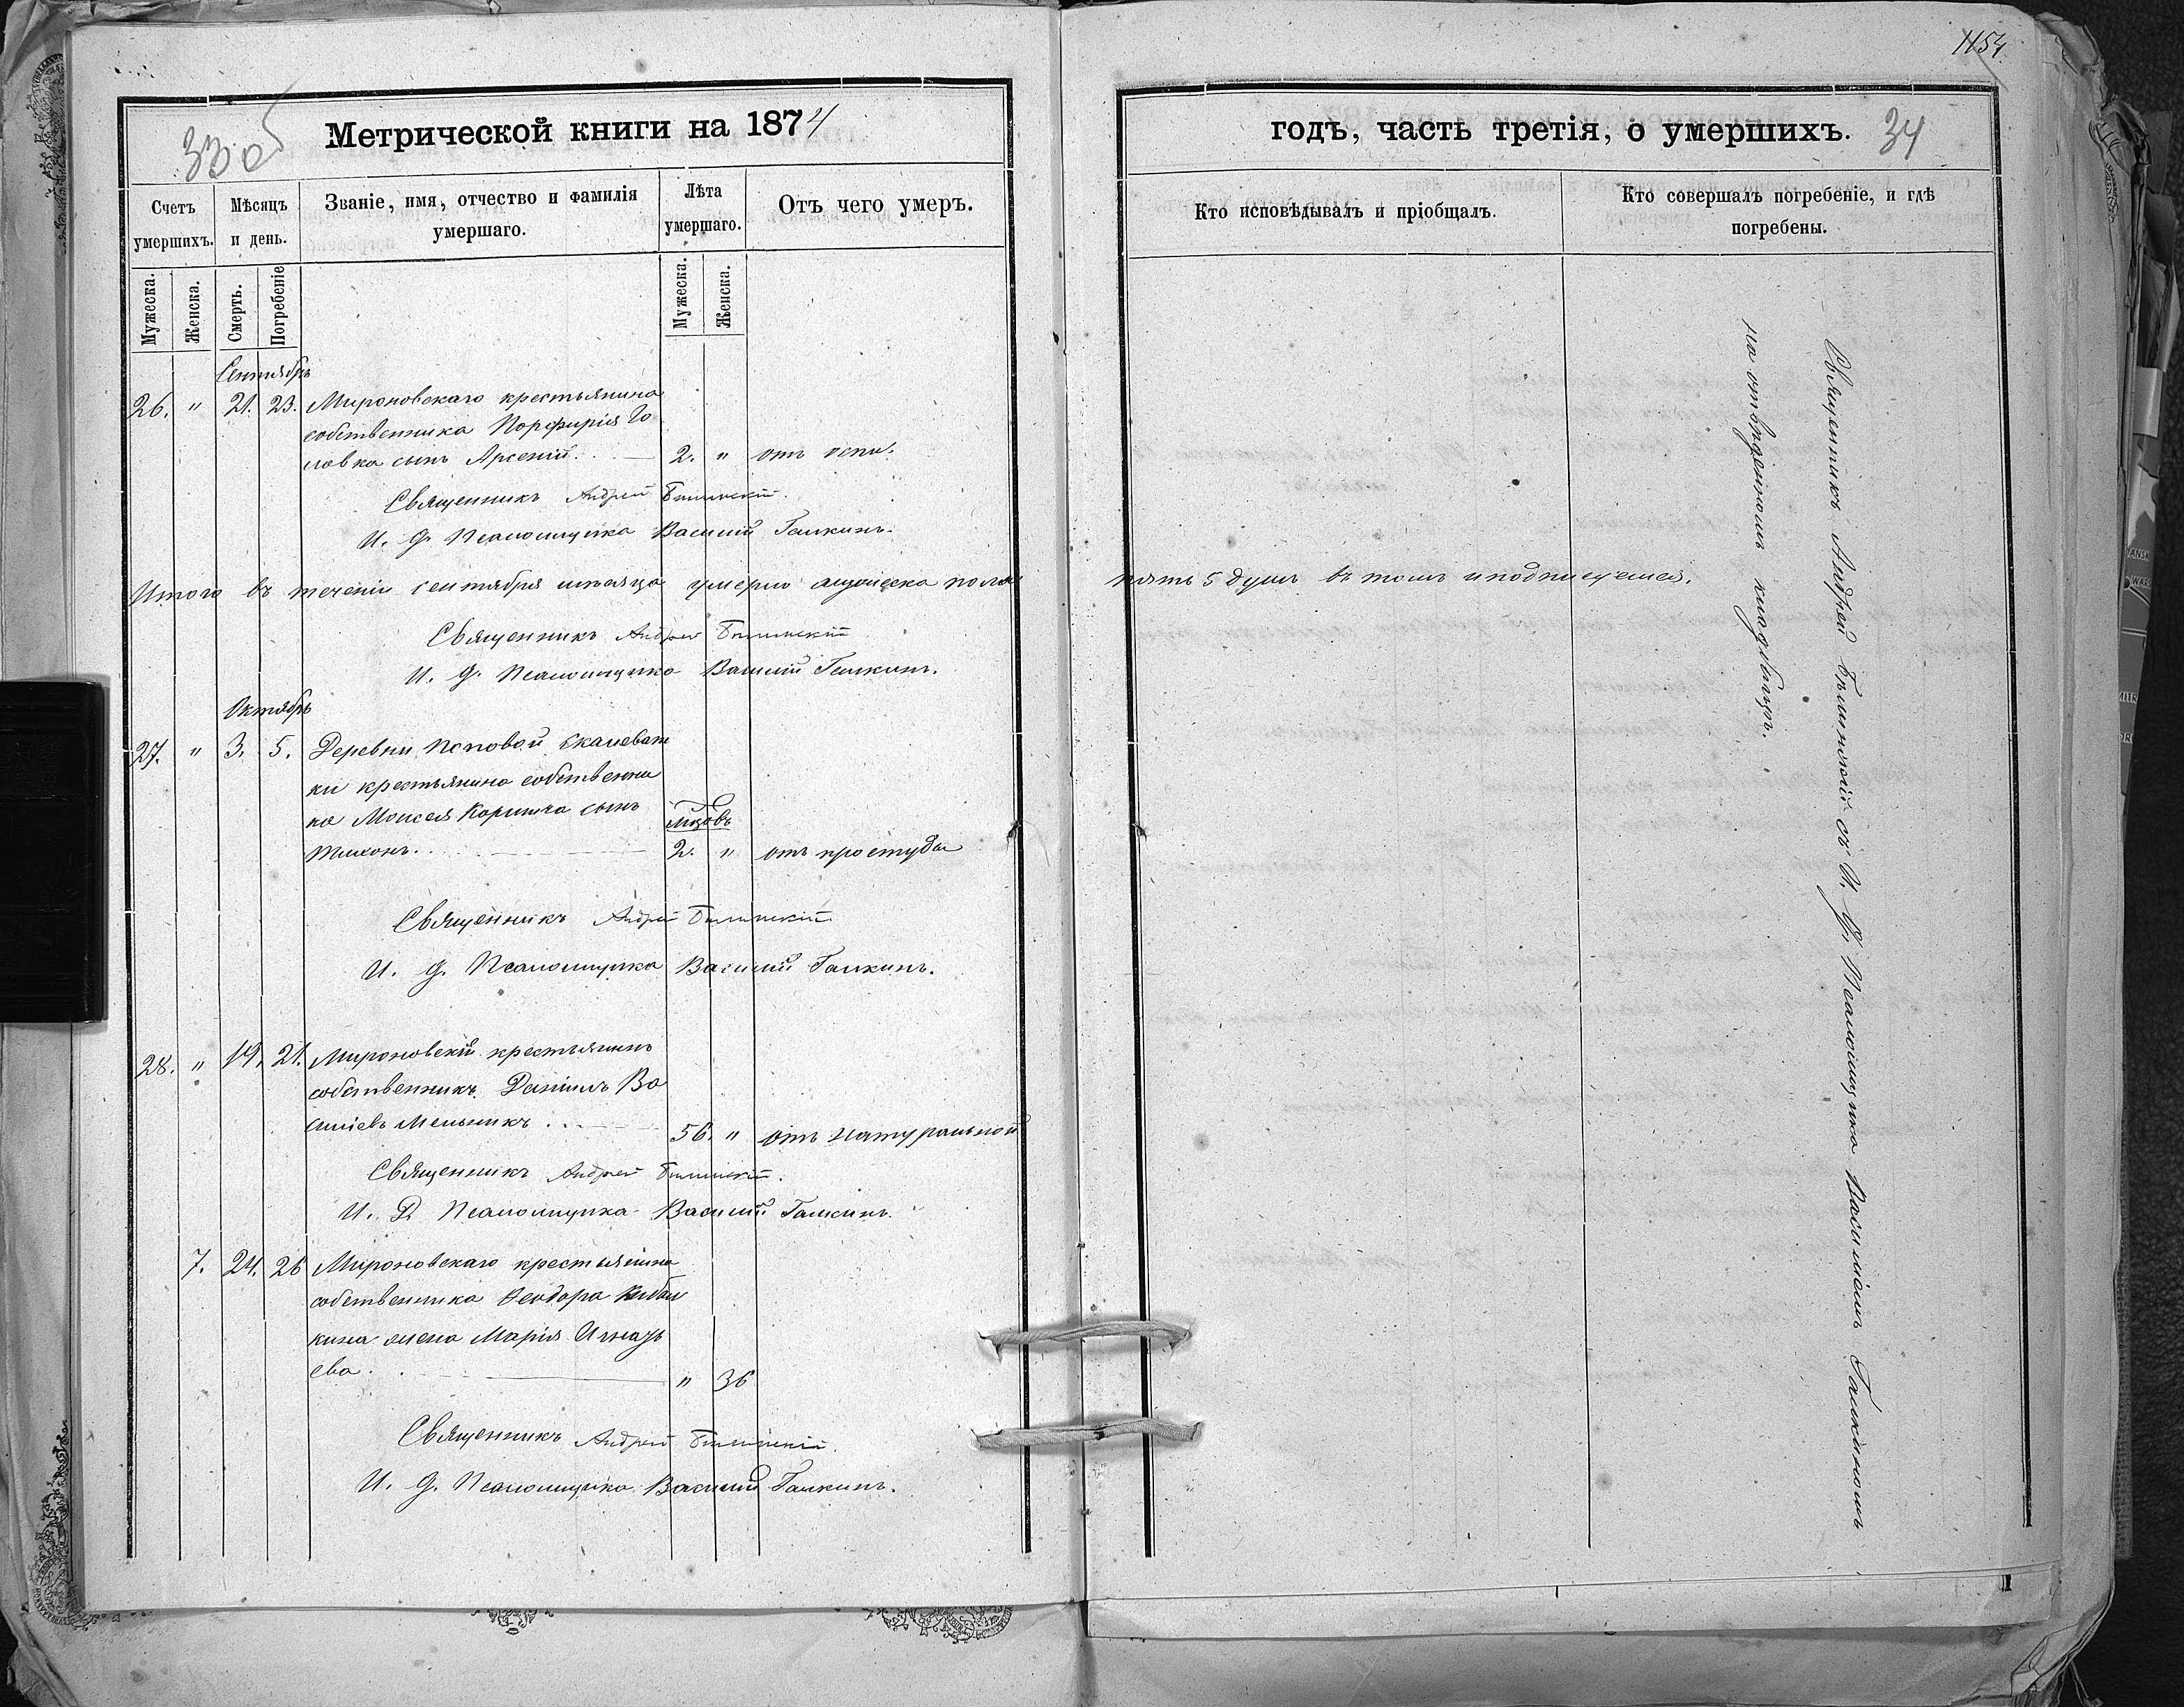 33 об
Метрической книги на 1874
Счетъ умершихъ.
Мѣсяцъ и день.
Званіе, имя, отчество и фамилія умершаго.
Лѣта умершаго.
Отъ чего умеръ.
Мужеска.
Женска.
Смерть.
Погребеніе
Мужеска.
Женска.
Сентябрь
26. " 21. 23. Мироновскаго крестьянина
собственника Порфирія Го
ловка сынъ Арсеній. 2. " отъ оспы.
Священникъ Андрей Бѣлинскій.
И. Д. Псаломщика Василий Галкинъ.
Итого въ теченіи сентября мѣсяца умерло мужеска пола
Священникъ Андрей Бѣлинскій
И. Д. Псаломщика Василий Галкинъ.
Октябрь
27. " 3. 5. Деревни Поповой Скалеват
ки крестьянина собственни
ка Моисея сынъ
Тихонъ. 2. " отъ простуды
Священникъ Андрей Бѣлинскій
И. Д. Псаломщика Василий Галкинъ.
28. " 19. 21. Мироновскій крестьянинъ
собственникъ Даніилъ Ва
силіевъ Мельникъ. 56. " отъ натуральной
Священникъ Андрей Бѣлинскій.
И. Д. Псаломщика Василий Галкинъ.
7. 24. 26 Мироновскаго крестьянина
собственника Ѳеодора
кина жена Марія Игнатъ
ева. " 36
Священникъ Андрей Бѣлинскій.
И. Д. Псаломщика Василий Галкинъ.
1154
годъ, часть третія, о умершихъ. 34
Кто исповѣдывалъ и пріобщалъ.
Кто совершалъ погребеніе, и гдѣ погребены.
пять 5 душъ въ томъ и подписуемся.
Священникъ Андрей Бѣлинскій съ И. Д. Псаломщика Василіемъ Галкиномъ
на отведенномъ кладбищѣ.